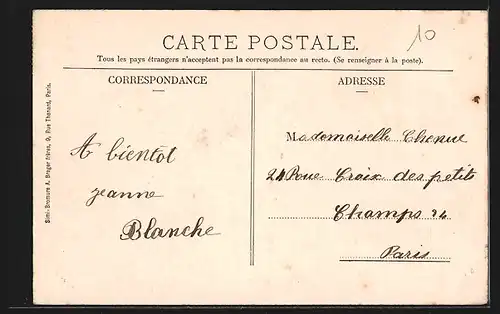 10
CARTE POSTALE.
Tous les pays étrangers n'acceptent pas la correspondance au recto. (Se renseigner à la poste).
CORRESPONDANCE
ADRESSE
Simi-Bromure A. Breger frères, 9, Rue Thénard, Paris.
A bientot
jeanne
Blanche
Mademoiselle Chenue
24 Rue Croix des petits
Champs 24
Paris